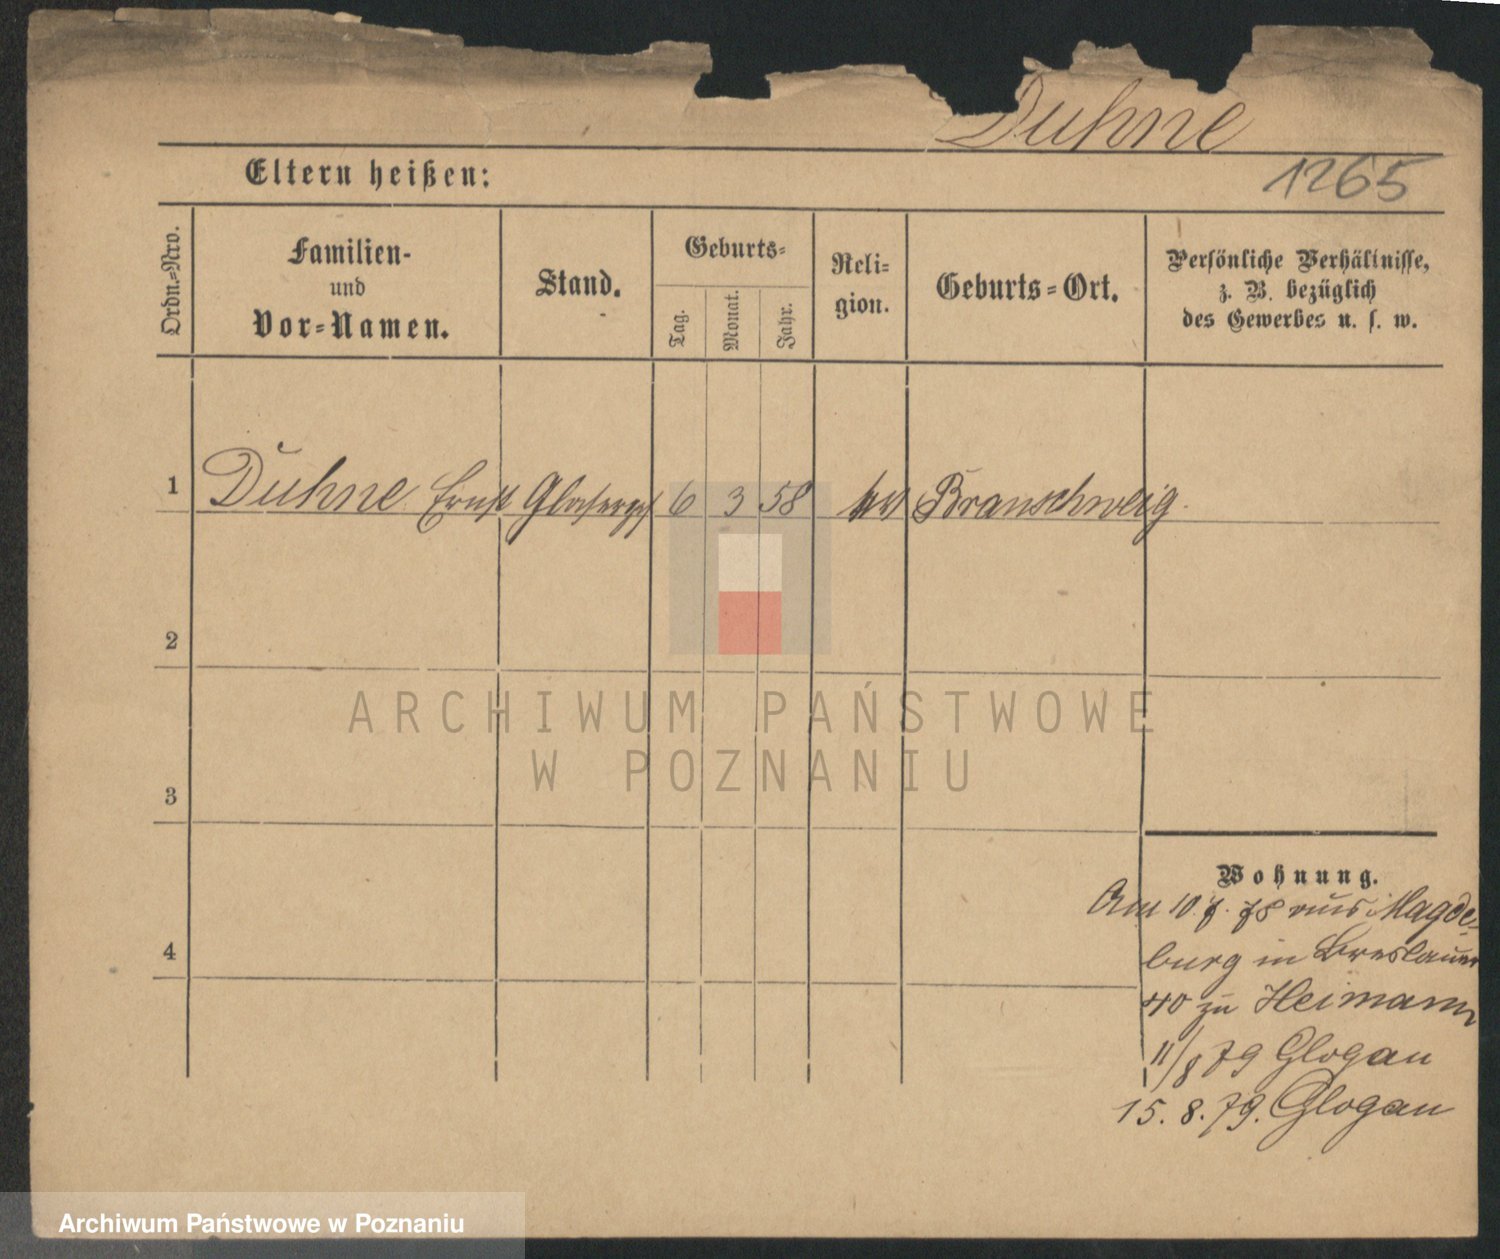 Duhne
Eltern heißen:
1265
Ordn.-Nro.
Familien-
und
Vor-Namen.
Stand.
Geburts-
Tag.
Monat.
Jahr.
Reli-
gion.
Geburts-Ort.
Persönliche Verhältnisse,
z. B. bezüglich
des Gewerbes u. s. w.
1 Duhne Ernst Glasergs 6 3 58 Branschweig
2
ARCHIWUM PAŃSTWOWE
W POZNANIU
3
Wohnung.
Am 10. 7. 78 aus Magde-
burg in Breslauer
4
40 zu Heimann
11/8 79 Glogau
15. 8. 79. Glogau
Archiwum Państwowe w Poznaniu